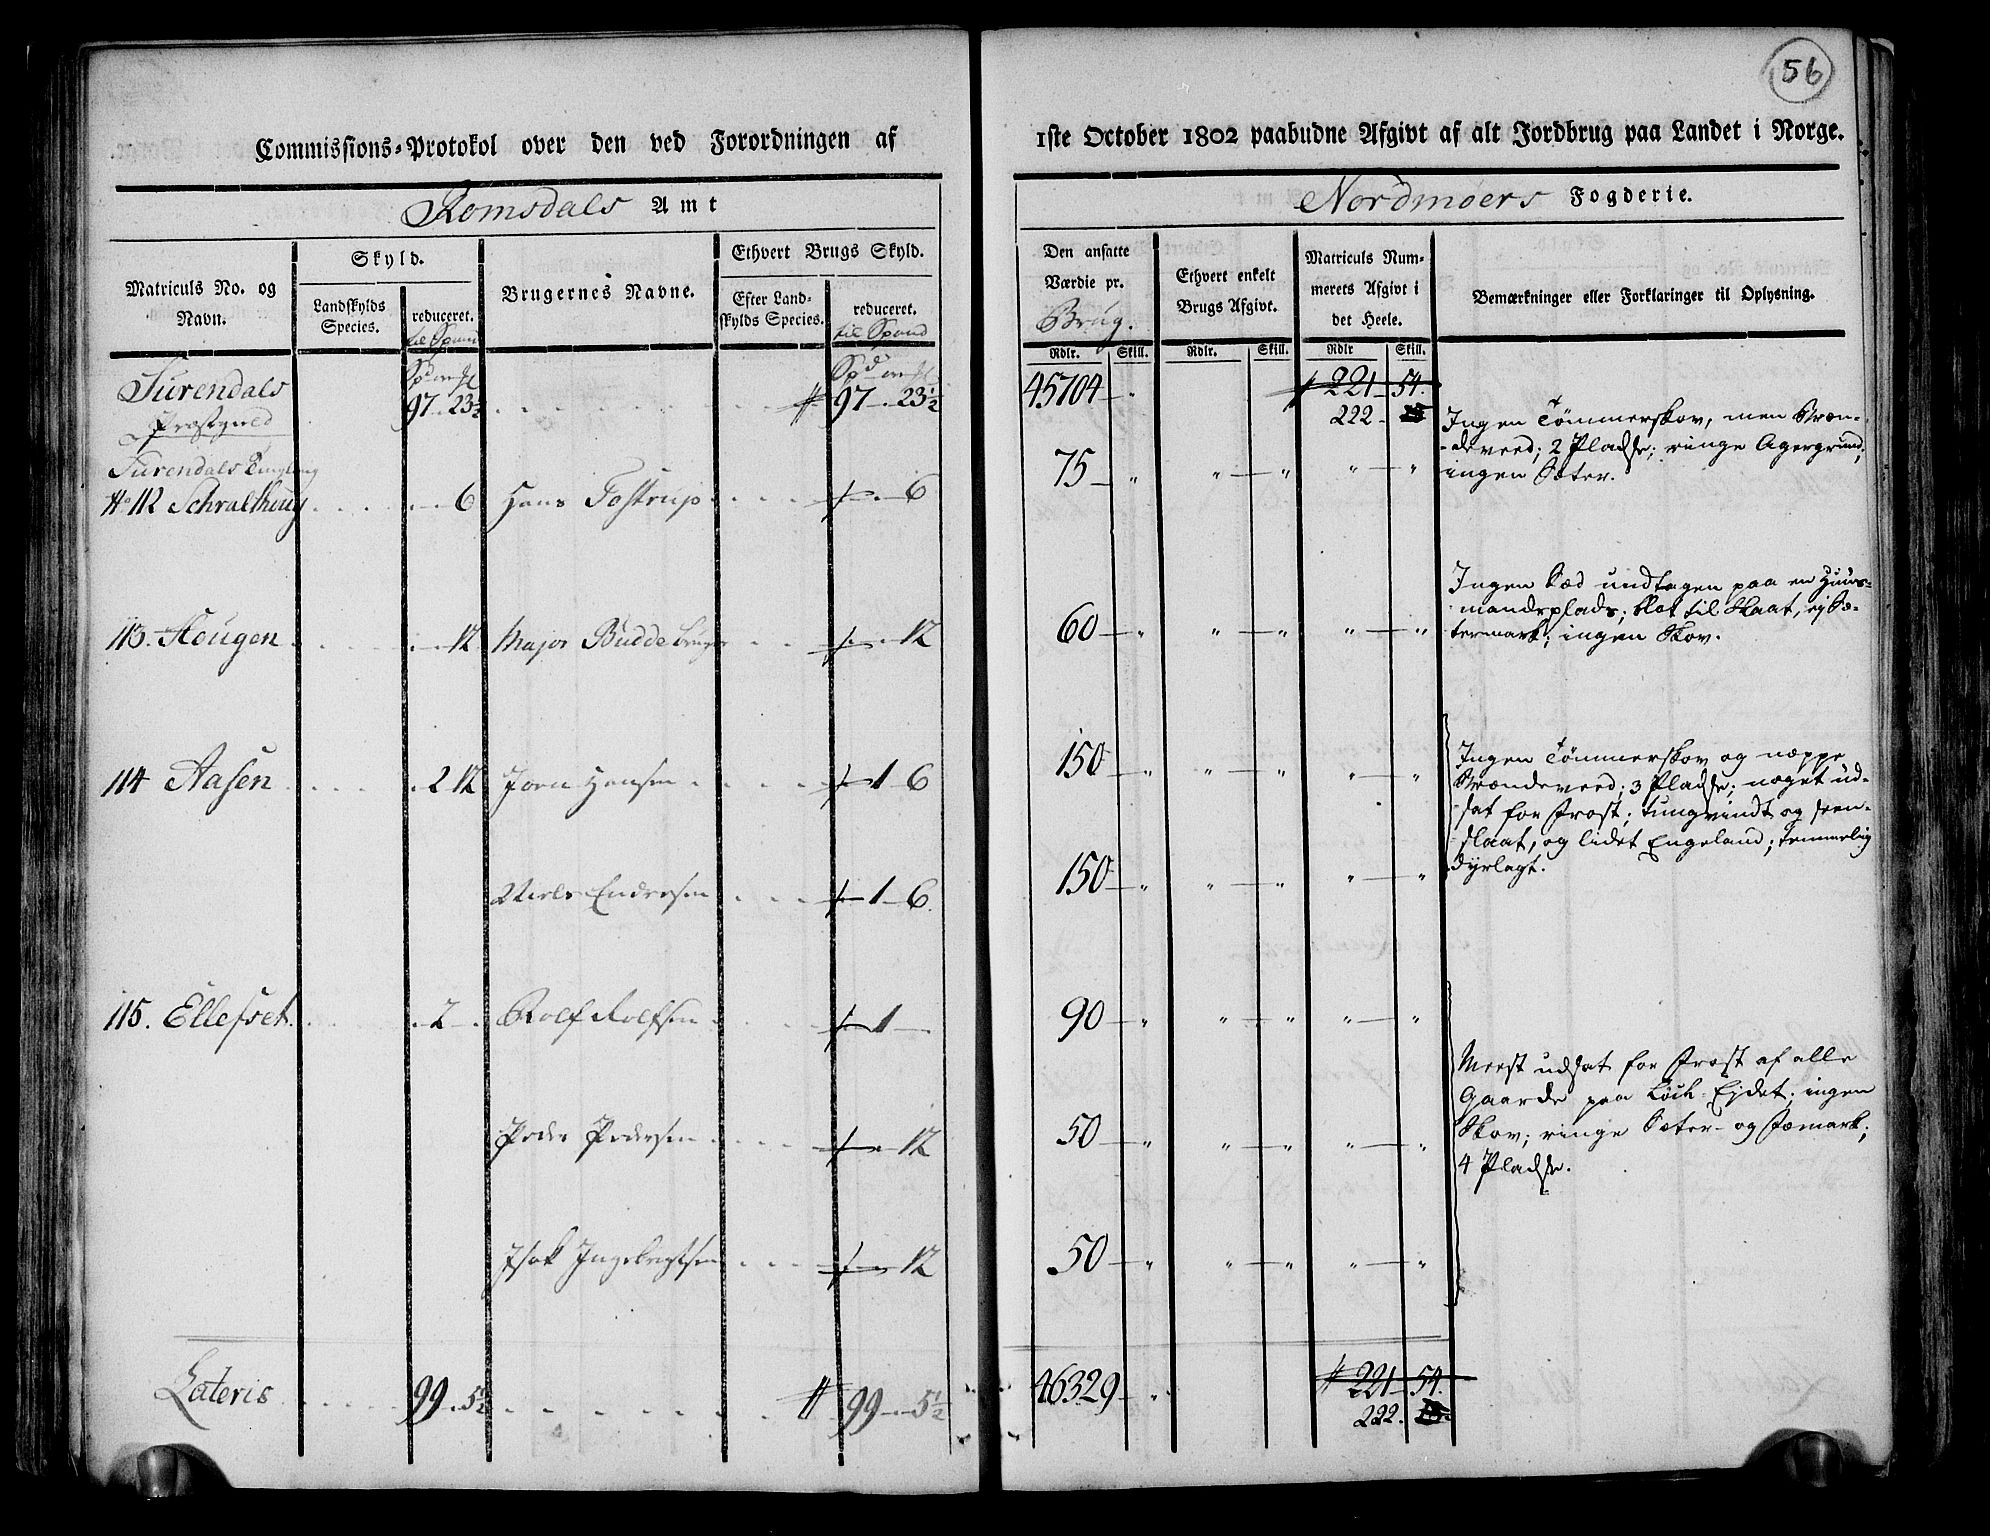 56
Commissions-Protokol over den ved Forordningen af
1ste October 1802 paabudne Afgivt af alt Jordbrug paa Landet i Norge.
Romsdals Amt
Nordmøers Fogderie.
Matriculs No. og Navn.
Skyld.
Landskylds Species.
reduceret. til Spand
Brugernes Navne.
Ethvert Brugs Skyld.
Efter Landskylds Species.
reduceret. til Spand
Den ansatte Værdie pr. Brug.
Ethvert enkelt Brugs Afgivt.
Matriculs Nummerets Afgivt i det Heele.
Bemærkninger eller Forklaringer til Oplysning.
Rdlr. Skill. Rdlr. Skill. Rdlr Skill.
Surendals 97 - 23½ 97 - 23½ 45704 - " 221 - 54.
Præstegield 222
Surendals
No 112 6 Hans Tostrup 6 75 - " " - " " - "
Ingen Tømmerskov, men Bræn-
deveed; 2 Pladse; ringe Agergrund,
ingen Sæter.
113. Heugen 12 Major Budde bruger 12 60 - " " - " " - "
Ingen Sæd undtagen paa en Huus-
mandsplads; blot til Slaat, ej Sæ-
termark; ingen Skov.
114 Aasen 2 12 Joen Hansen 1 6 150 - " " - " " - "
Niels Endersen 1 - 6 150 - " " - " " - "
Ingen Tømmerskov og næppe
Brændeveed; 3 Pladse; noget ud-
sat for Frost; tungvindt og seen-
slaat, og lidet Engeland; temmelig
dyrlagt.
115. Ellefset 2 - Rolf Rolfsen 1 - 90 - " " - " " - "
Peder Pedersen 12 50 - " " - " " - "
Isak Ingebrigtsen 12 50 - " " - " " - "
Meest udsat for Frost af alle
Gaarde paa Ejdet; ingen
Skov; ringe Sæter- og Fæmark;
4 Pladse.
Lateris 99 - 5½ 99 - 5½ 46329 - " 221 - 54.
222.